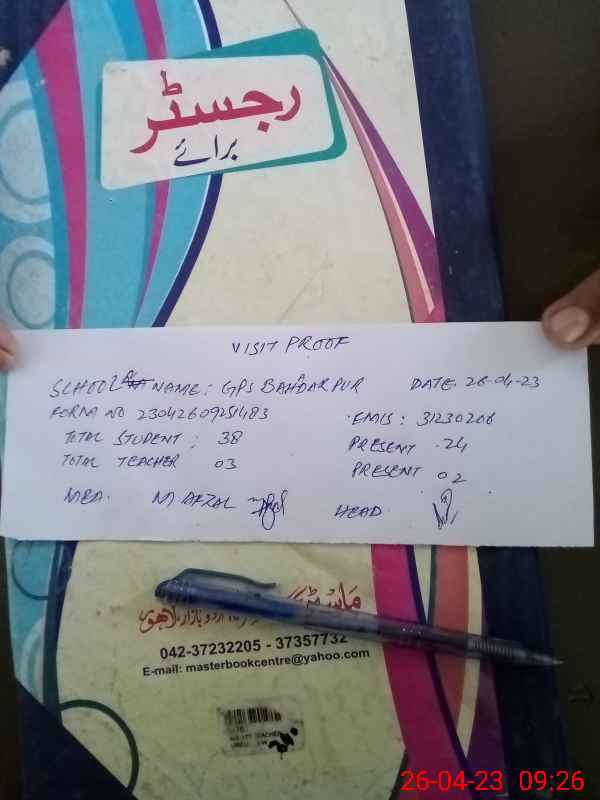 رجسٹر
برائے
VISIT PROOF
SCHOOL NAME: GPS BAHADARPUR DATE. 26-04-23
FORM NO 23042609251483 EMIS: 31230206
TOTAL STUDENT: 38 PRESENT 24
TOTAL TEACHER 03 PRESENT 02
MEA. M AFZAL HEAD
ماسٹر
اردو بازار، لاہور
042-37232205 - 37357732
E-mail: masterbookcentre@yahoo.com
26-04-23 09:26